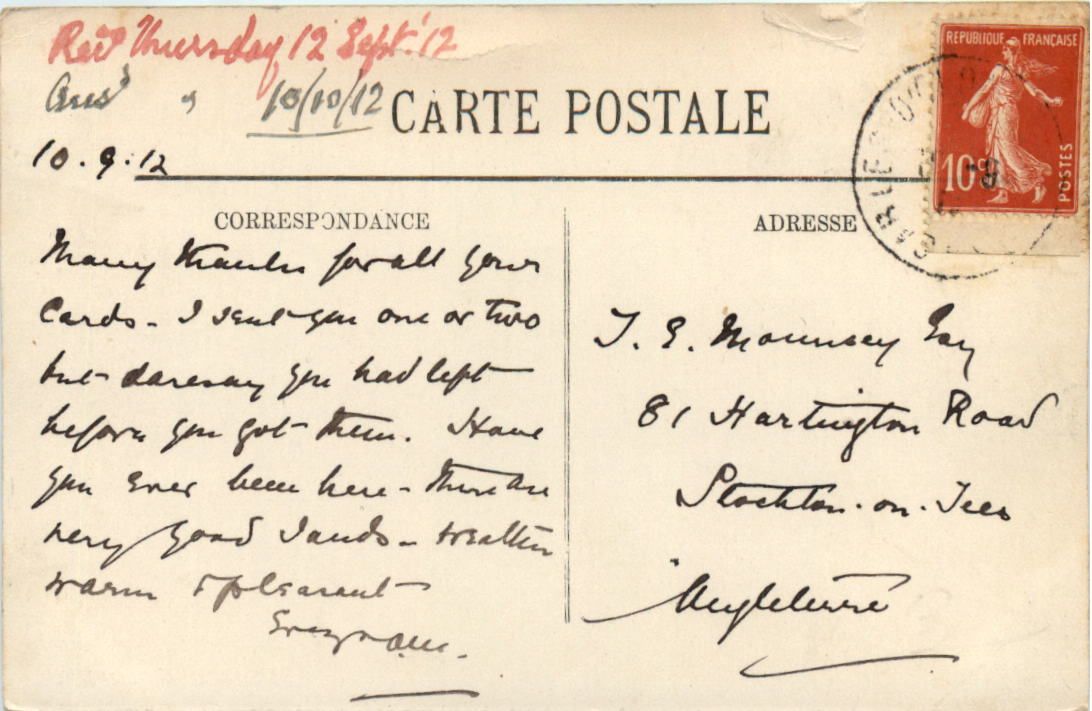 Recd Thursday 12 Sept. '12
Ansd " 10/10/12
CARTE POSTALE
10.9.12
REPUBLIQUE FRANÇAISE
10c
POSTES
CORRESPONDANCE
Many thanks for all your
Cards - I sent you one or two
but daresay you had left
before you got them. Have
you ever been here - there are
very good sands - weather
warm & pleasant
ADRESSE
T. E. Mounsey Esq
81 Hartington Road
Stockton-on-Tees
Angleterre